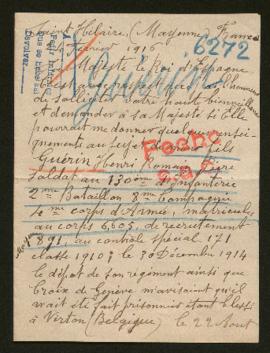 St Hilaire, (Mayenne, France)
Février 1916
6272
Majesté le Roi d'Espagne
C'est avec respect que j'ai l'honneur
de solliciter votre haute bienveillance
et demander à sa Majesté si Elle
pourrait me donner quelques rensei-
gnements au sujet de mon fils
Guérin Henri Romain
soldat au 130me d'Infanterie
2me Bataillon 8me Compagnie
4me corps d'Armée, matricules
au corps 6503, de recrutement
891, au contrôle spécial 171
classe 1910; le 30 Décembre 1914
le dépôt de son régiment ainsi que
Croix de Genève m'avisaint qu'il
avait été fait prisonnier étant blessé
à Virton (Belgique) le 22 Août
Guérin
Fecho